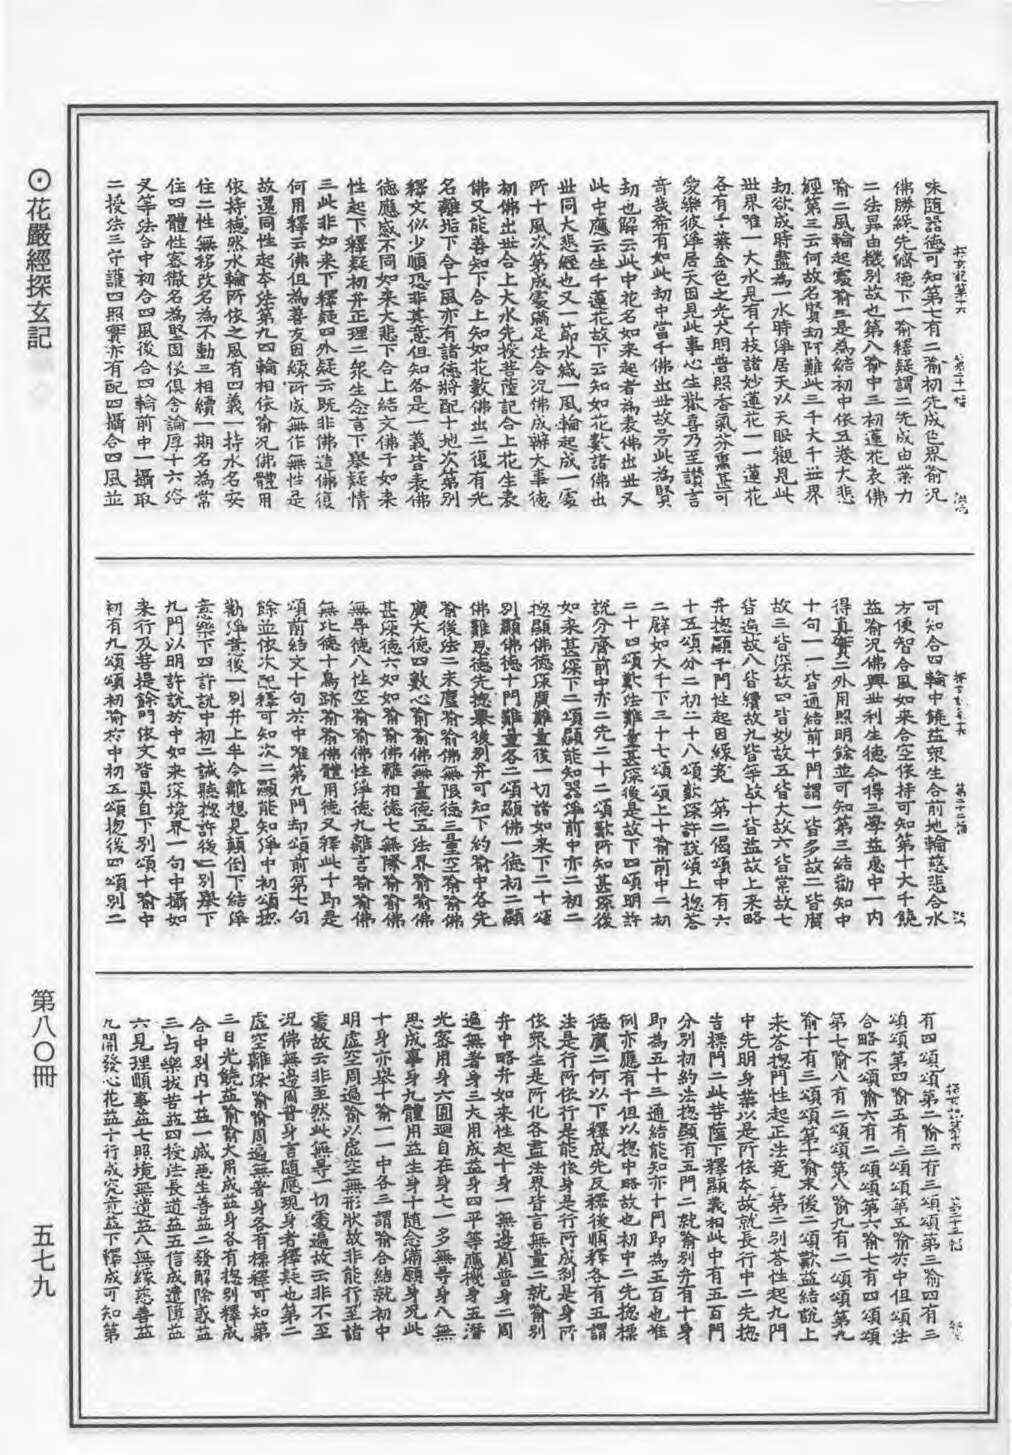 ⊙花嚴經探玄記
第八〇冊
五七九
味隨器德可知第七有二喻初先成色界喻況
佛勝緣先縮德下一喻釋疑謂二先成由業力
二法昇由機別故也第八喻中三初蓮花表佛
喻二風輪起處喻三是為結初中依五卷大悲
經第三云何故名賢劫阿難此三千大千世界
劫欲成時盡為一水時淨居天以天眼觀見此
世界唯一大水見有千枝諸妙蓮花一一蓮花
各有千葉金色之光大明普照香氣芬熏甚可
愛樂彼淨居天因見此事心生歡喜乃至讚言
奇哉希有如此劫中當千佛出世故号此為賢
劫也解云此中花名如來起者為表佛出世又
此中應云生千蓮花故下云知如花數諸佛出
世同大悲經也又一節水滅一風輪起成一處
所十風次第成處滿足法合況佛成辦大事德
初佛出世合上大水先授菩薩記合上花生表
佛又能善知下合上知如花數佛出二復有光
名離垢下合十風亦有諸德將配十地次第別
釋文似少順恐非其意但知各是一義皆表佛
德應惑不同如來大悲下合上結文佛子如來
性起下釋疑初弁正理二衆生念言下舉疑情
三此非如來下釋疑四外疑云既非佛造佛復
何用釋云佛但為善友因緣所成無作無性是
故還同性起本法第九四輪相依喻況佛體用
依持德然水輪所依之風有四義一持水名安
住二性無移改名為不動三相續一期名為常
住四體性密緻名為堅固依俱舍論厚十六洛
叉等法合中初合四風後合四輪前中一攝取
二授法三守護四照實亦有配四攝合四風並
可知合四輪中饒益衆生合前地輪慈悲合水
方便智合風如來合空依持可知第十大千饒
益喻況佛興世利生德令得三學益惠中一内
得真實二外用照明餘並可知第三結勸知中
十句一一皆通結前十門謂一皆多故二皆廣
故三皆深故四皆妙故五皆大故六皆常故七
皆遍故八皆續故九皆等故十皆益故上來略
弁揔顯千門性起因緣竟　第二偈頌中有六
十五頌分二初二十八頌歎深許說頌上揔答
二辟如大千下三十七頌頌上十喻前中二初
二十四頌歎法難量甚深後是故下四頌明許
說分齊前中亦二先二十二頌歎所知甚深後
如來甚深下二頌顯能知器淨前中亦二初二
揔顯佛德深廣難量後一切諸如來下二十頌
別顯佛德十門難量各二頌顯佛一德初二顯
佛難思德先揔舉後別弁可知下約喻中各先
喻後法二求塵喻喻佛無限德三量空喻喻佛
廣大德四數心喻喻佛無量德五法界喻喻佛
甚深德六如如喻喻佛離相德七無際喻喻佛
無导德八性空喻喻佛性淨德九離言喻喻佛
無比德十鳥跡喻喻佛體用德又釋此十即是
頌前結文十句於中唯第九門却頌前第七句
餘並依次配釋可知次二顯能知淨中初頌揔
勸淨意後一別弁上半令離想見顛倒下結淨
意樂下四許說中初二誡聽揔許後二別舉下
九門以明許說於中如來深境界一句中攝如
來行及菩提餘門依文皆具自下別頌十喻中
初有九頌頌初喻於中初五頌揔後四頌別二
有四頌頌第二喻三有三頌頌第三喻四有三
頌頌第四喻五有二頌頌第五喻於中但頌法
合略不頌喻六有二頌頌第六喻七有四頌頌
第七喻八有二頌頌第八喻九有二頌頌第九
喻十有三頌頌第十喻末後二頌歎益結說上
來答揔門性起正法竟　第二別答性起九門
中先明身業以是所依本故就長行中二先揔
告標門二此菩薩下釋顯義相此中有五百門
分別初約法揔顯有五門二就喻別弁有十身
即為五十三通結能知亦十門即為五百也准
例亦應有千但以揔中略故也初中二先揔標
德廣二何以下釋成先反釋後順釋各有五謂
法是行所依行是能依身是行所成刹是身所
依衆生是所化各盡法界皆言無量二就喻別
弁中略弁如來性起十身一無邊周普身二周
遍無著身三大用成益身四平等應機身五潛
光密用身六圓迴自在身七一多無导身八無
思成事身九體用益生身十隨念滿願身死此
十身亦舉十喻一一中各三謂喻合結就初中
明虛空周遍喻以虛空無形狀故非能行至諸
處故云非至然此無导一切處遍故云非不至
況佛無邊周普身言隨應現身者釋疑也第二
虛空離染喻喻周遍無著身各有標釋可知第
三日光饒益喻喻大用成益身各有揔別釋成
合中別内十益一滅惡生善益二發解除惑益
三与樂拔苦益四授法長道益五信成遣墮益
六見理順事益七照境無遺益八無緣慈善益
九開發心花益十行成究竟益下釋成可知第